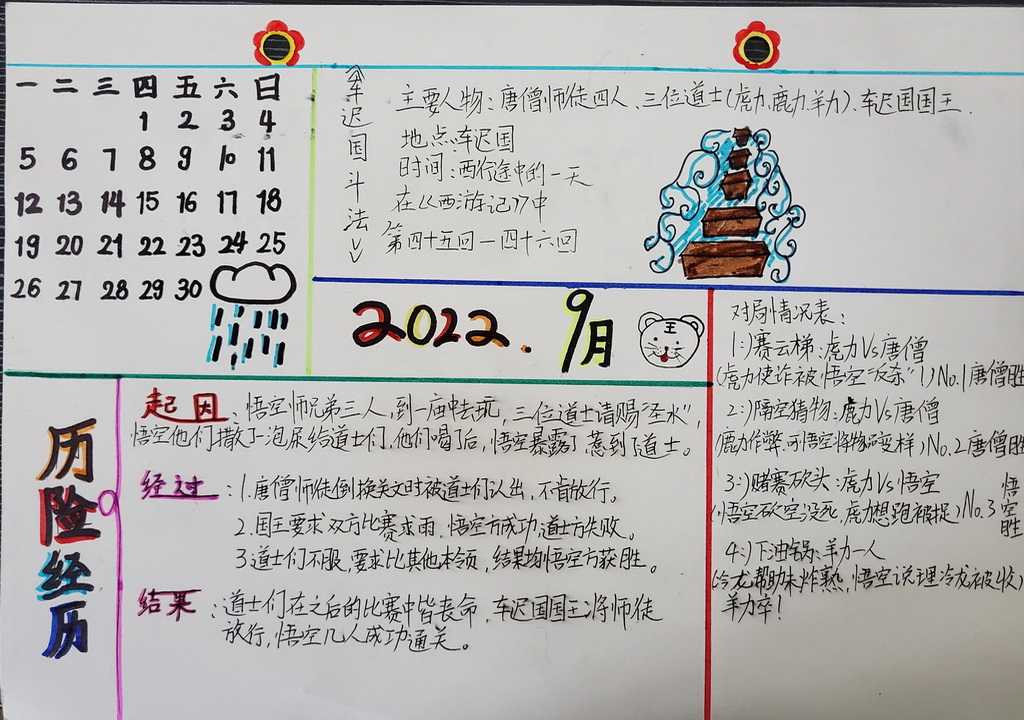 一 二 三 四 五 六 日
1 2 3 4
5 6 7 8 9 10 11
12 13 14 15 16 17 18
19 20 21 22 23 24 25
26 27 28 29 30
《车迟国斗法》
主要人物：唐僧师徒四人、三位道士(虎力、鹿力、羊力)、车迟国国王.
地点：车迟国
时间：西行途中的一天
在《西游记》中
第四十五回—四十六回
2022.9月
王
历险经历
起因：悟空师兄弟三人，到一庙中去玩，三位道士请赐“圣水”，
悟空他们撒了一泡尿给道士们，他们喝了后，悟空暴露了惹到了道士。
经过：1.唐僧师徒倒换关文时被道士们认出，不肯放行。
2.国王要求双方比赛求雨，悟空方成功，道士方失败。
3.道士们不服，要求比其他本领，结果均悟空方获胜。
结果：道士们在之后的比赛中皆丧命，车迟国国王将师徒
放行，悟空几人成功通关。
对局情况表：
1:)赛云梯：虎力Vs唐僧
(虎力使诈被悟空“反杀”!)No.1唐僧胜
2:)隔空猜物：鹿力Vs唐僧
(鹿力作弊，可悟空将物品变样)No.2唐僧胜
3:)赌赛砍头：虎力Vs悟空
(悟空砍空没死，虎力想跑被捉)No.3悟空胜
4:)下油锅：羊力一人
(冷龙帮助未炸熟，悟空说理冷龙被收)
羊力卒!